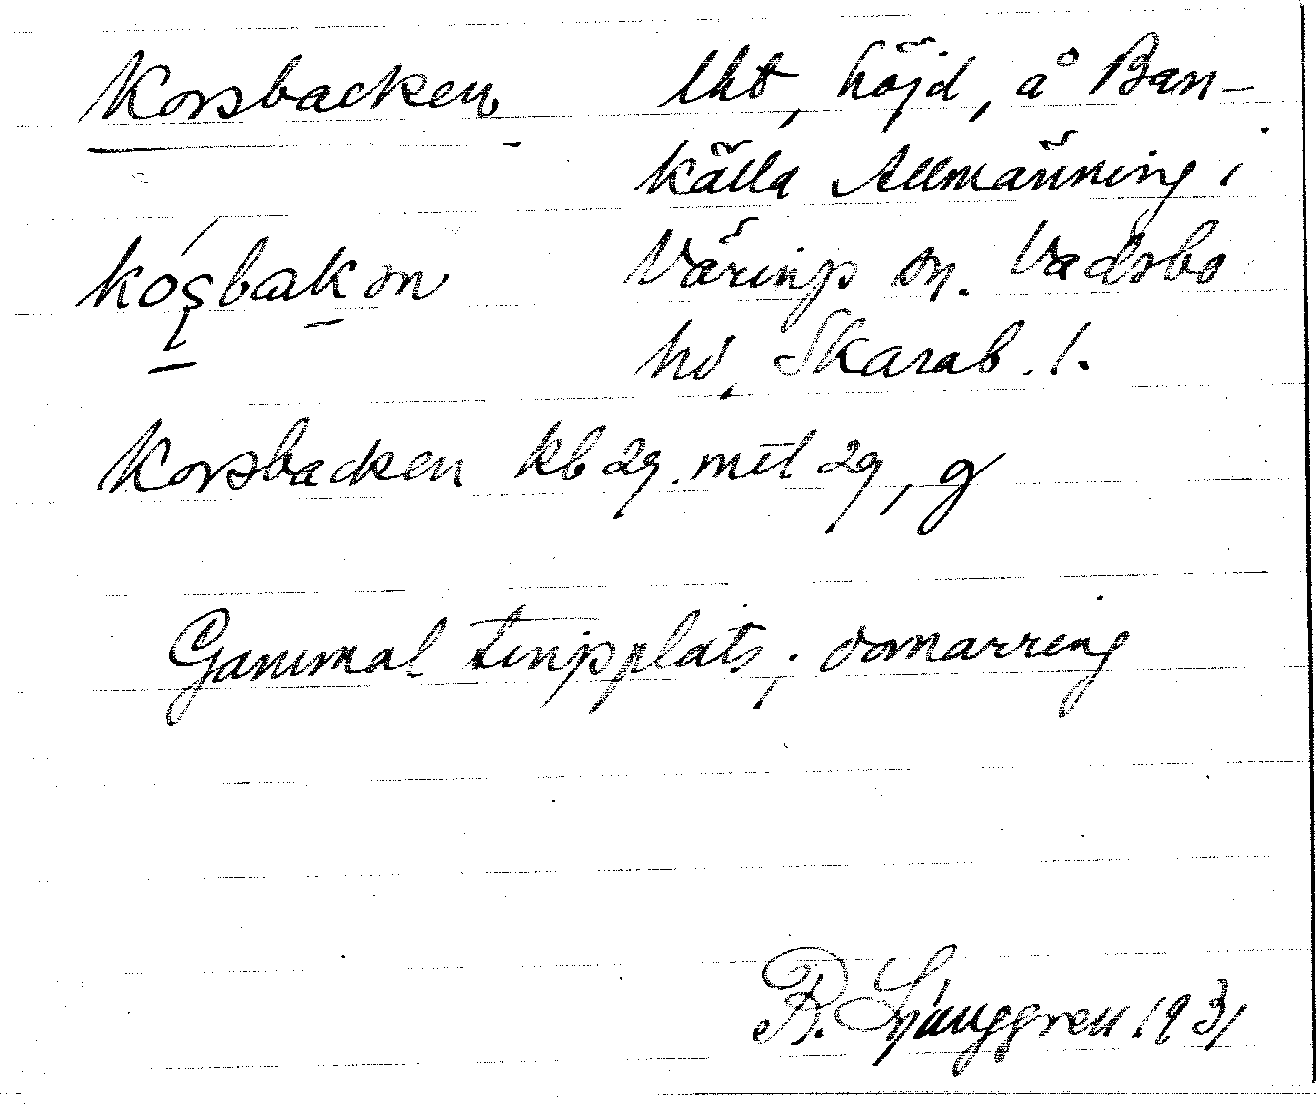 Korsbacken lht, höjd, å Ban-
källa Allmänning i
kosbakən Värings sn. Vadsbo
hd, Skarab. l.
Korsbacken kb 29. mtl 29, g
Gammal tingsplats, domarring
R. Ljunggren 1931